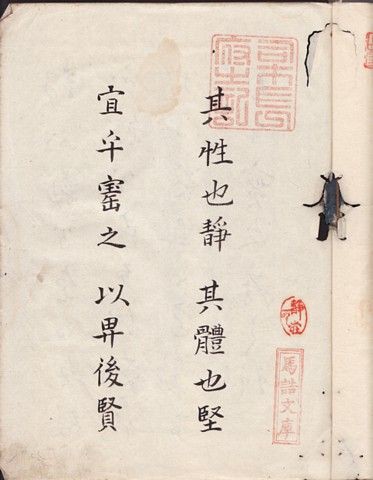 其性也靜 其體也堅
宜乎寚之 以畀後賢
靜
馬誥文庫